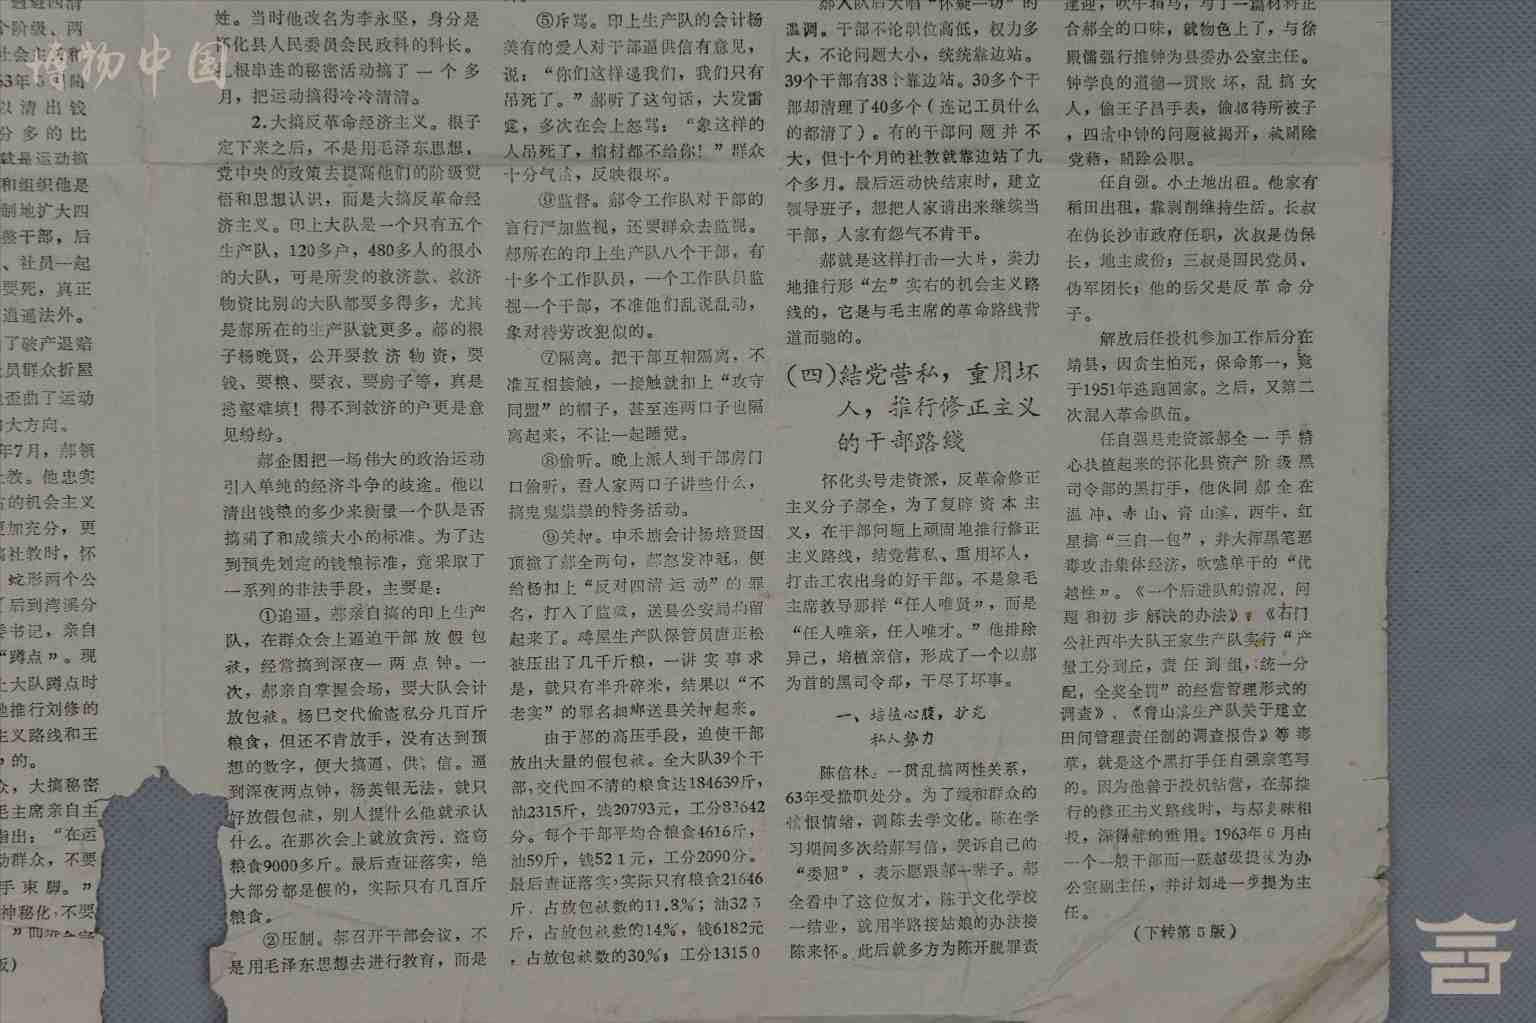 博物中国
姓。当时他改名为李永坚，身分是
怀化县人民委员会民政科的科长。
根串连的秘密活动搞了一个多
月，把运动搞得冷冷清清。
2.大搞反革命经济主义。根子
定下来之后，不是用毛泽东思想、
党中央的政策去提高他们的阶级觉
悟和思想认识，而是大搞反革命经
济主义。印上大队是一个只有五个
生产队，120多户，480多人的很小
的大队，可是所发的救济款、救济
物资比别的大队都要多得多，尤其
是郝所在的生产队就更多。郝的根
子杨晚贤，公开要救济物资，要
钱、要粮、要衣、要房子等，真是
恣壑难填！得不到救济的户更是意
见纷纷。
郝企图把一场伟大的政治运动
引入单纯的经济斗争的歧途。他以
清出钱粮的多少来衡量一个队是否
搞阔了和成绩大小的标准。为了达
到预先划定的钱粮标准，竟采取了
一系列的非法手段，主要是：
①追逼。郝亲自搞的印上生产
队，在群众会上逼迫干部放假包
袱，经常搞到深夜一两点钟。一
次，郝亲自掌握会场，要大队会计
放包袱。杨巳交代偷盗私分几百斤
粮食，但还不肯放手，没有达到预
想的数字，便大搞逼、供、信。逼
到深夜两点钟，杨英银无法，就只
好放假包袱，别人提什么他就承认
什么。在那次会上就放贪污、盗窃
粮食9000多斤。最后查证落实，绝
大部分都是假的，实际只有几百斤
粮食。
②压制。郝召开干部会议，不
是用毛泽东思想去进行教育，而是
⑤斥骂。印上生产队的会计杨
美有的爱人对干部逼供信有意见，
说：“你们这样逼我们，我们只有
吊死了。”郝听了这句话，大发雷
霆，多次在会上怒骂：“象这样的
人吊死了，棺材都不给你！”群众
十分气愤，反映很坏。
⑥监督。郝令工作队对干部的
言行严加监视，还要群众去监视。
郝所在的印上生产队八个干部，有
十多个工作队员，一个工作队员监
视一个干部，不准他们乱说乱动，
象对待劳改犯似的。
⑦隔离。把干部互相隔离，不
准互相接触，一接触就扣上“攻守
同盟”的帽子，甚至连两口子也隔
离起来，不让一起睡觉。
⑧偷听。晚上派人到干部房门
口偷听，看人家两口子讲些什么，
搞鬼鬼祟祟的特务活动。
⑨关押。中禾塘会计杨培贤因
顶撞了郝全两句，郝怒发冲冠，便
给杨扣上“反对四清运动”的罪
名，打入了监狱，送县公安局拘留
起来了。砖屋生产队保管员唐正松
被压出了几千斤粮，一讲实事求
是，就只有半升碎米，结果以“不
老实”的罪名捆绑送县关押起来。
由于郝的高压手段，迫使干部
放出大量的假包袱。全大队39个干
部，交代四不清的粮食达184639斤，
油2315斤，钱20793元，工分83642
分。每个干部平均合粮食4616斤，
油59斤，钱521元，工分2090分。
最后查证落实，实际只有粮食21646
斤，占放包袱数的11.8%；油325
斤，占放包袱数的14%，钱6182元
，占放包袱数的30%；工分13150
郝入队后大唱“怀疑一切”的
温调。干部不论职位高低，权力多
大，不论问题大小，统统靠边站。
39个干部有38个靠边站。30多个干
部却清理了40多个（连记工员什么
的都清了）。有的干部问题并不
大，但十个月的社教就靠边站了九
个多月。最后运动快结束时，建立
领导班子，想把人家请出来继续当
干部，人家有怨气不肯干。
郝就是这样打击一大片，卖力
地推行形“左”实右的机会主义路
线的，它是与毛主席的革命路线背
道而驰的。
(四)结党营私，重用坏
人，推行修正主义
的干部路线
怀化头号走资派，反革命修正
主义分子郝全，为了复辟资本主
义，在干部问题上顽固地推行修正
主义路线，结党营私、重用坏人，
打击工农出身的好干部。不是象毛
主席教导那样“任人唯贤”，而是
“任人唯亲，任人唯才。”他排除
异己，培植亲信，形成了一个以郝
为首的黑司令部，干尽了坏事。
一、培植心腹，扩充
私人势力
陈信林。一贯乱搞两性关系，
63年受撤职处分。为了缓和群众的
愤恨情绪，调陈去学文化。陈在学
习期间多次给郝写信，哭诉自己的
“委屈”，表示愿跟郝一辈子。郝
全看中了这位奴才，陈于文化学校
一结业，就用半路接姑娘的办法接
陈来怀。此后就多方为陈开脱罪责
逢迎，吹牛拍马，写了一篇材料正
合郝全的口味，就物色上了，与徐
殿儒强行推钟为县委办公室主任。
钟学良的道德一贯败坏，乱搞女
人，偷王子昌手表，偷招待所被子
，四清中钟的问题被揭开，被开除
党藉，开除公职。
任自强。小土地出租。他家有
稻田出租，靠剥削维持生活。长叔
在伪长沙市政府任职，次叔是伪保
长，地主成份；三叔是国民党员、
伪军团长；他的岳父是反革命分
子。
解放后任投机参加工作后分在
靖县，因贪生怕死，保命第一，竟
于1951年逃跑回家。之后，又第二
次混入革命队伍。
任自强是走资派郝全一手精
心扶植起来的怀化县资产阶级黑
司令部的黑打手，他伙同郝全在
温冲、赤山、青山溪、西牛、红
星搞“三自一包”，并大挥黑笔恶
毒攻击集体经济，吹嘘单干的“优
越性”。《一个后进队的情况、问
题和初步解决的办法》，《石门
公社西牛大队王家生产队实行“产
量工分到丘，责任到组，统一分
配，全奖全罚”的经营管理形式的
调查》、《青山溪生产队关于建立
田间管理责任制的调查报告》等毒
草，就是这个黑打手任自强亲笔写
的。因为他善于投机钻营，在郝推
行的修正主义路线时，与郝臭味相
投，深得郝的重用。1963年6月由
一个一般干部而一跃越级提拔为办
公室副主任，并计划进一步提为主
任。
（下转第5版）